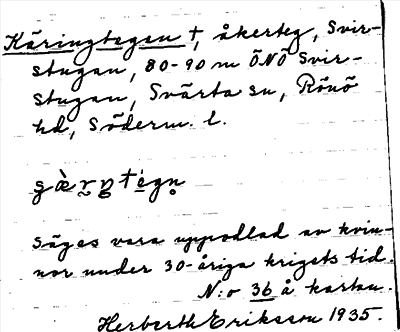 Käringtegen †, åkerteg, Svir-
stugan, 80-90 m ÖNÖ Svir-
stugan, Svärta sn, Rönö
hd, Söderm. l.
Säges vara uppodlad av kvin-
nor under 30-åriga krigets tid.
N:o 36 å kartan.
Herberth Eriksson 1935.